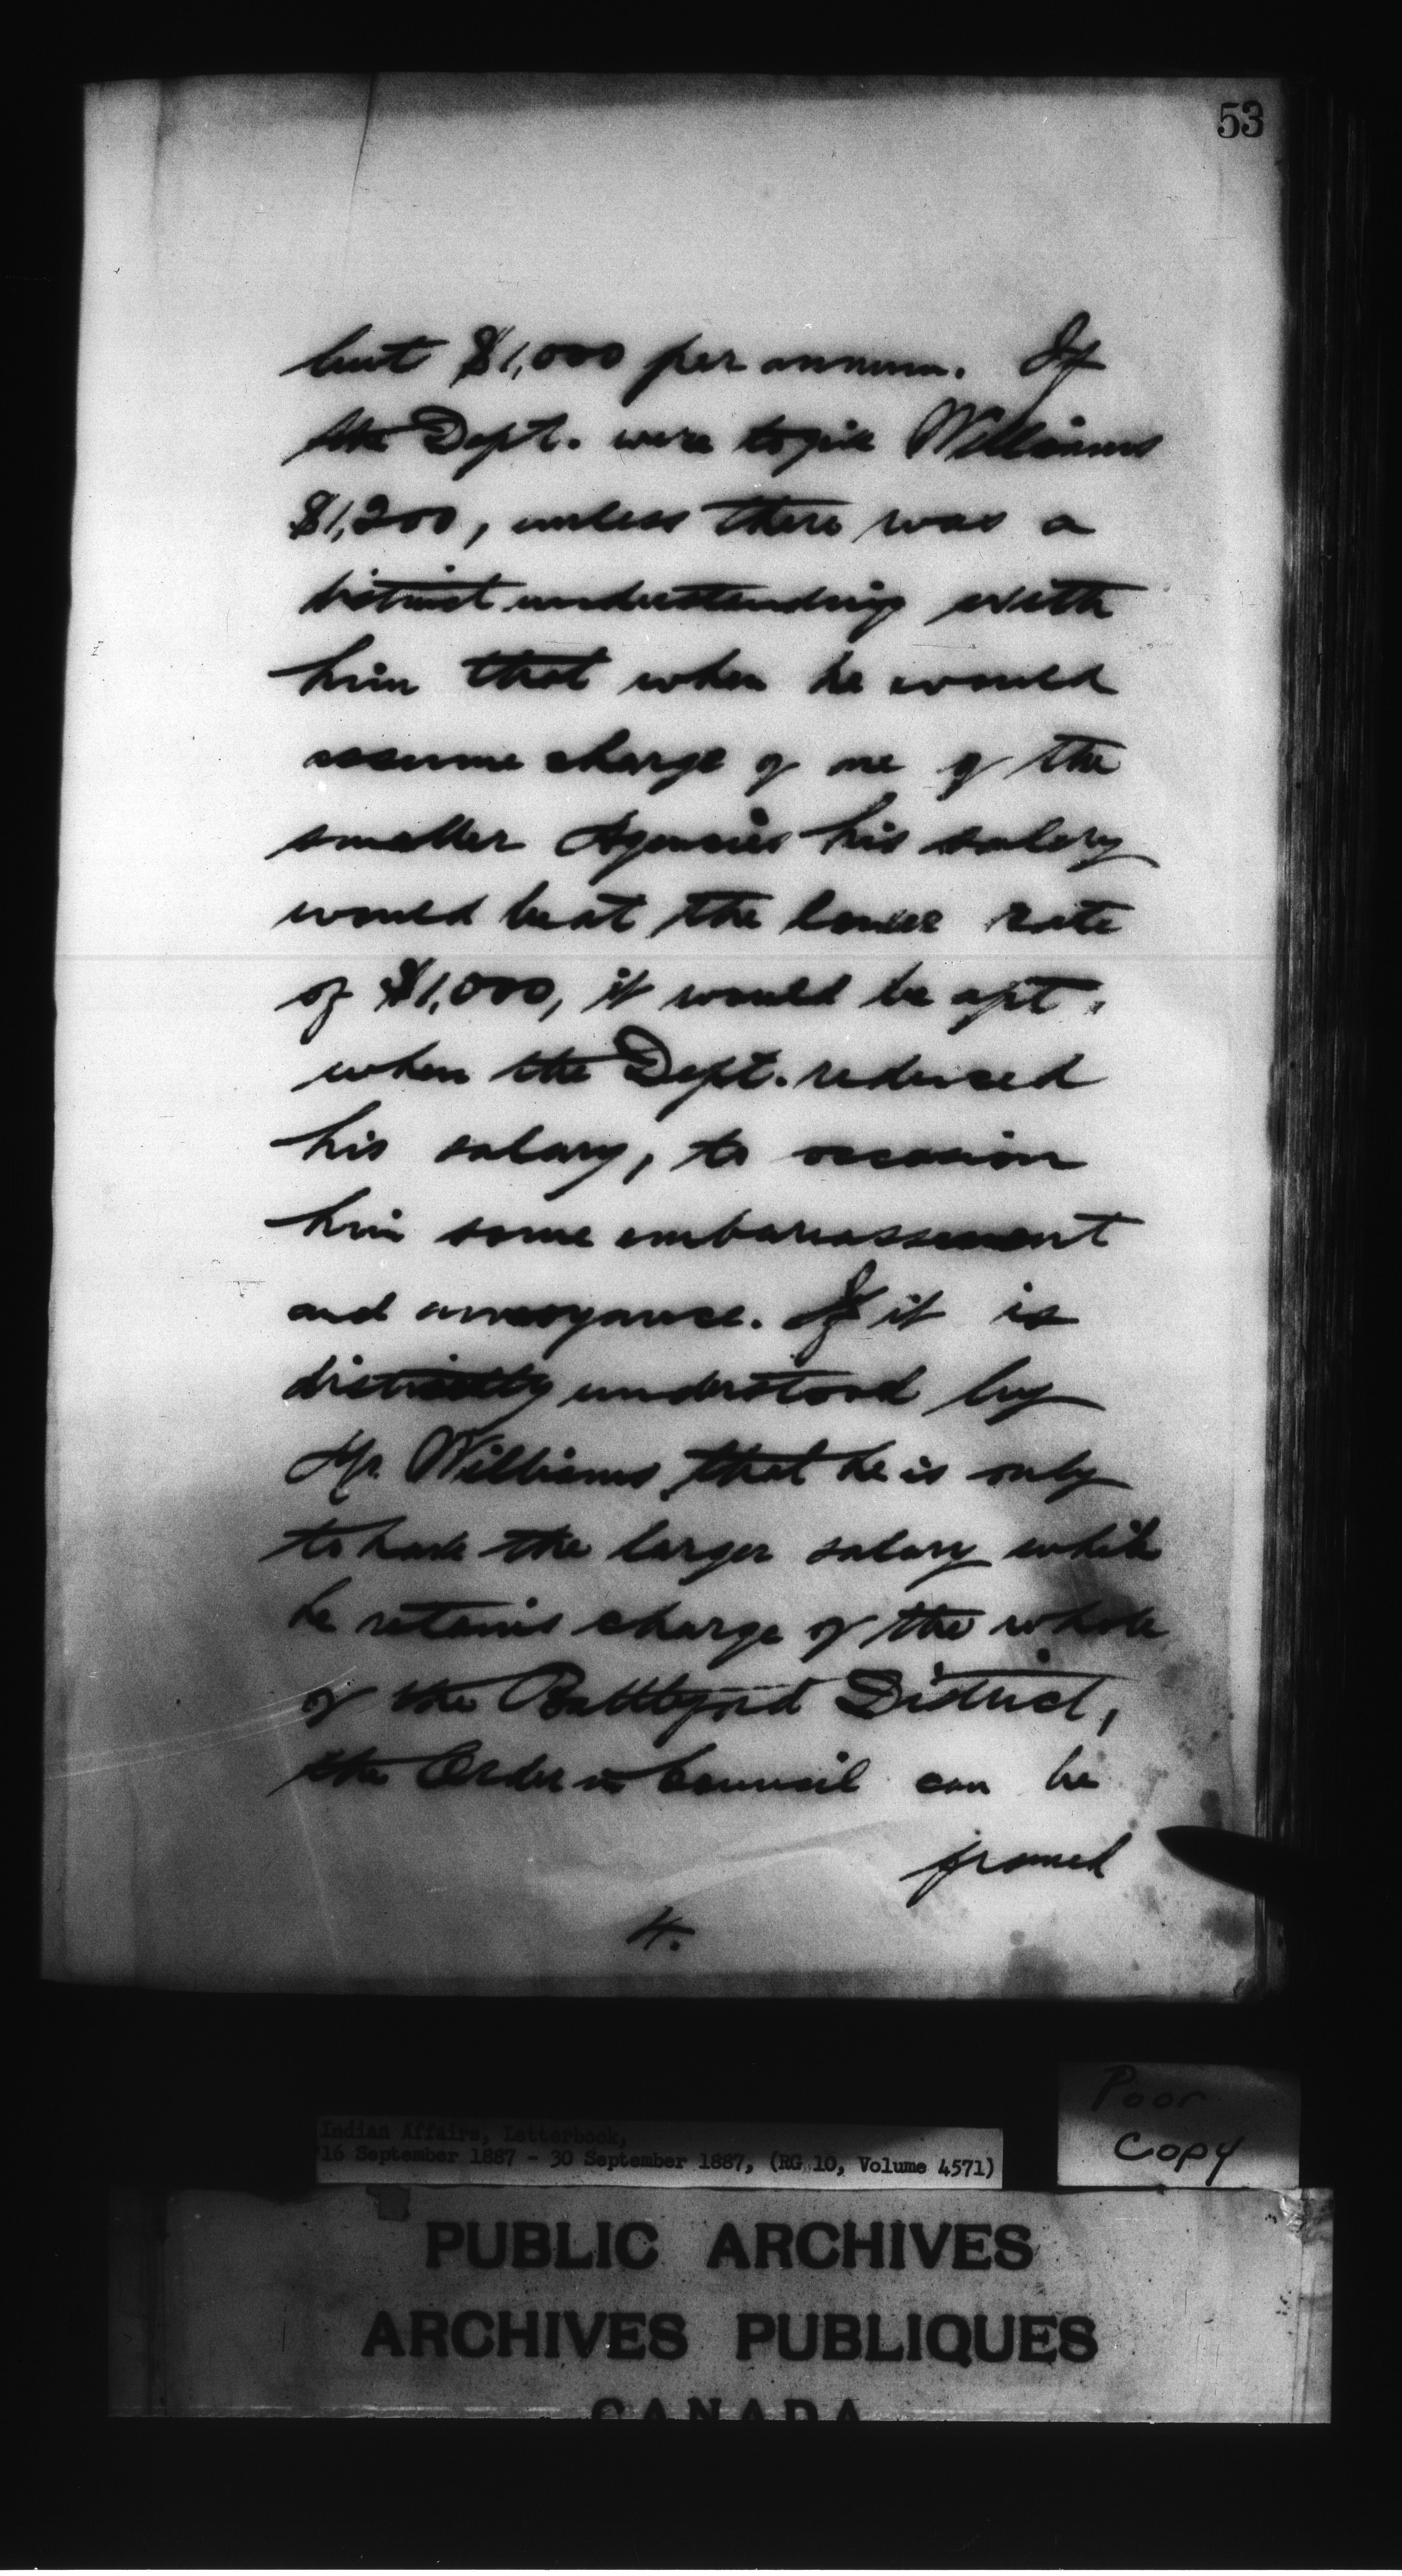 53
but $1,000 per annum. If
the Dept. were to give Williams
$1,200, unless there was a
distinct understanding with
him that when he would
assume charge of one of the
smaller Agencies his salary
would be at the lower rate
of $1,000, it would be apt,
when the Dept. reduced
his salary, to occasion
him some embarrassment
and annoyance. If it is
distinctly understood by
Mr. Williams, that he is only
to have the larger salary while
he retains charge of the whole
of the Battleford District,
the Order in Council can be
framed
4.
Poor
Copy
Indian Affairs, Letterbook,
16 September 1887 - 30 September 1887, (RG 10, Volume 4571)
PUBLIC ARCHIVES
ARCHIVES PUBLIQUES
CANADA